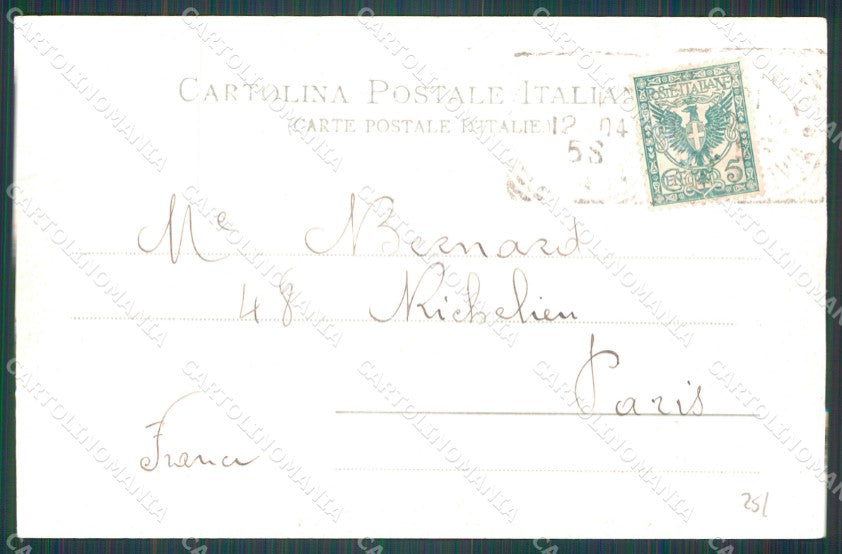 CARTOLINA POSTALE ITALIANA
(CARTE POSTALE D'ITALIE)
12 04
5S
POSTE ITALIANE
CENT. 5
Me Bernard
48 Richelieu
Paris
France
25/
CARTOLINOMANIA